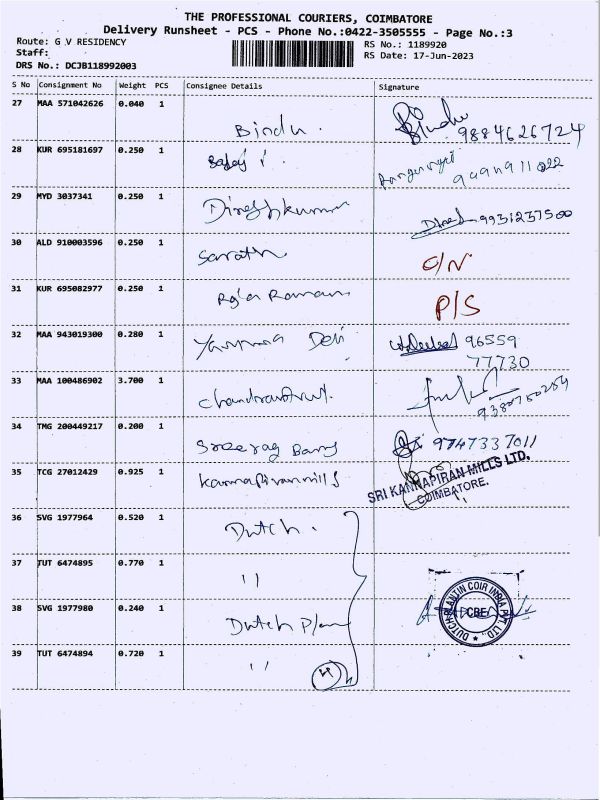 THE PROFESSIONAL COURIERS, COIMBATORE
Delivery Runsheet - PCS - Phone No.:0422-3505555 - Page No.:3
Route: G V RESIDENCY
RS No.: 1189920
Staff:
RS Date: 17-Jun-2023
DRS No.: DCJB118992003
S No Consignment No Weight PCS Consignee Details Signature
27 MAA 571042626 0.040 1 Bindu. Bindu 9884626724
28 KUR 695181697 0.250 1
29 MYD 3037341 0.250 1 Dineshkumar 9931237500
30 ALD 910003596 0.250 1 Sarath C/N
31 KUR 695082977 0.250 1 Raja Raman P/S
32 MAA 943019300 0.280 1 Yamuna Devi 96559
77730
33 MAA 100486902 3.700 1
34 TMG 200449217 0.200 1 Sreerag 9747337011
35 TCG 27012429 0.925 1 Kannapiran mills SRI KANNAPIRAN MILLS LTD.
COIMBATORE.
36 SVG 1977964 0.520 1 Dutch.
37 TUT 6474895 0.770 1 "
38 SVG 1977980 0.240 1 Dutch Plan DUTCH PLANTIN COIR INDIA PVT LTD., CBE
39 TUT 6474894 0.720 1 " 4